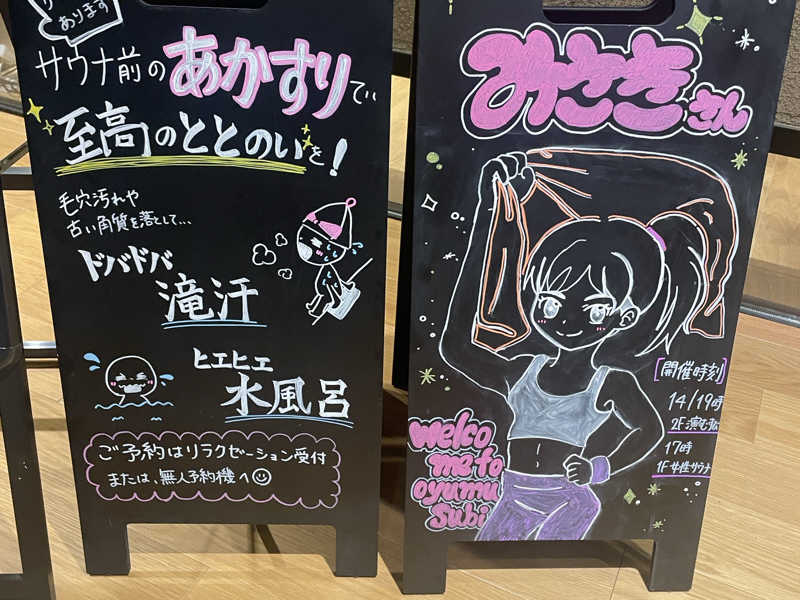 あります
サウナ前のあかすりで
至高のととのいを!
毛穴汚れや
古い角質を落として…
ドバドバ
滝汗
ヒエヒエ
水風呂
ご予約はリラクゼーション受付
または、無人予約機へ
みさきさん
[開催時刻]
14/19時
17時
1F女性サウナ
welco
me to
oyumu
subi